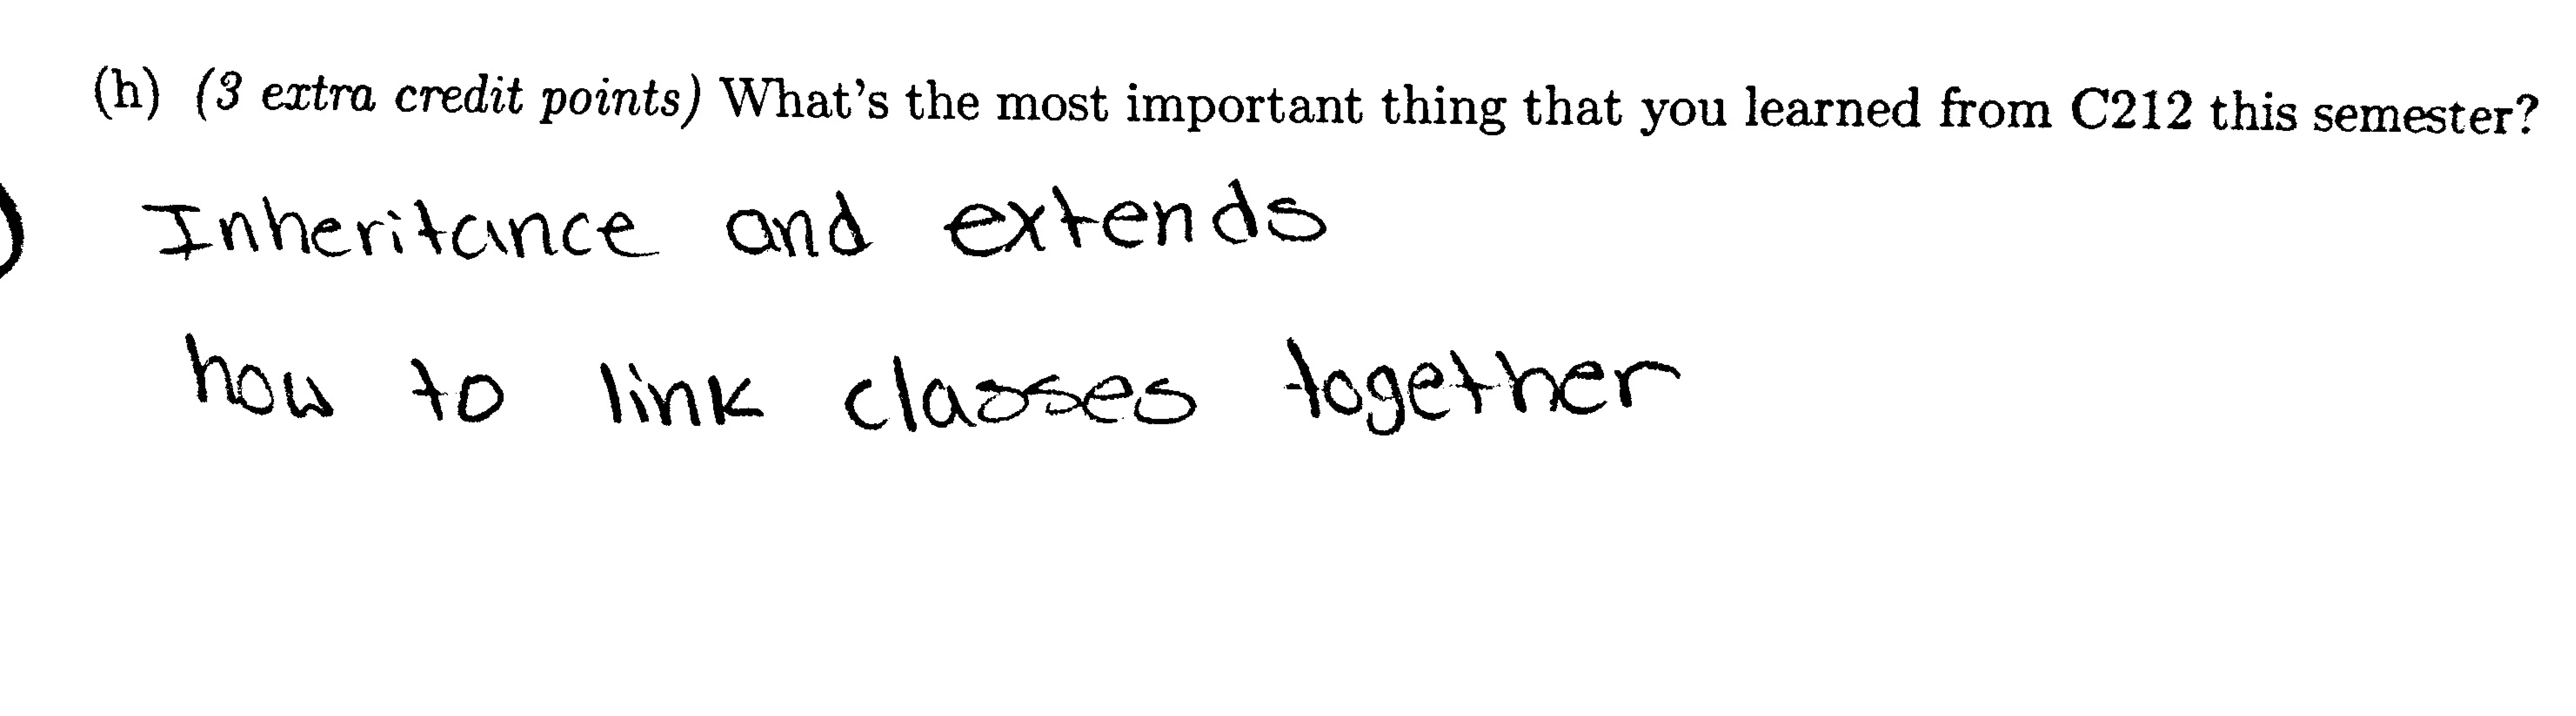 (h) (3 extra credit points) What's the most important thing that you learned from C212 this semester?
Inheritance and extends
how to link classes together